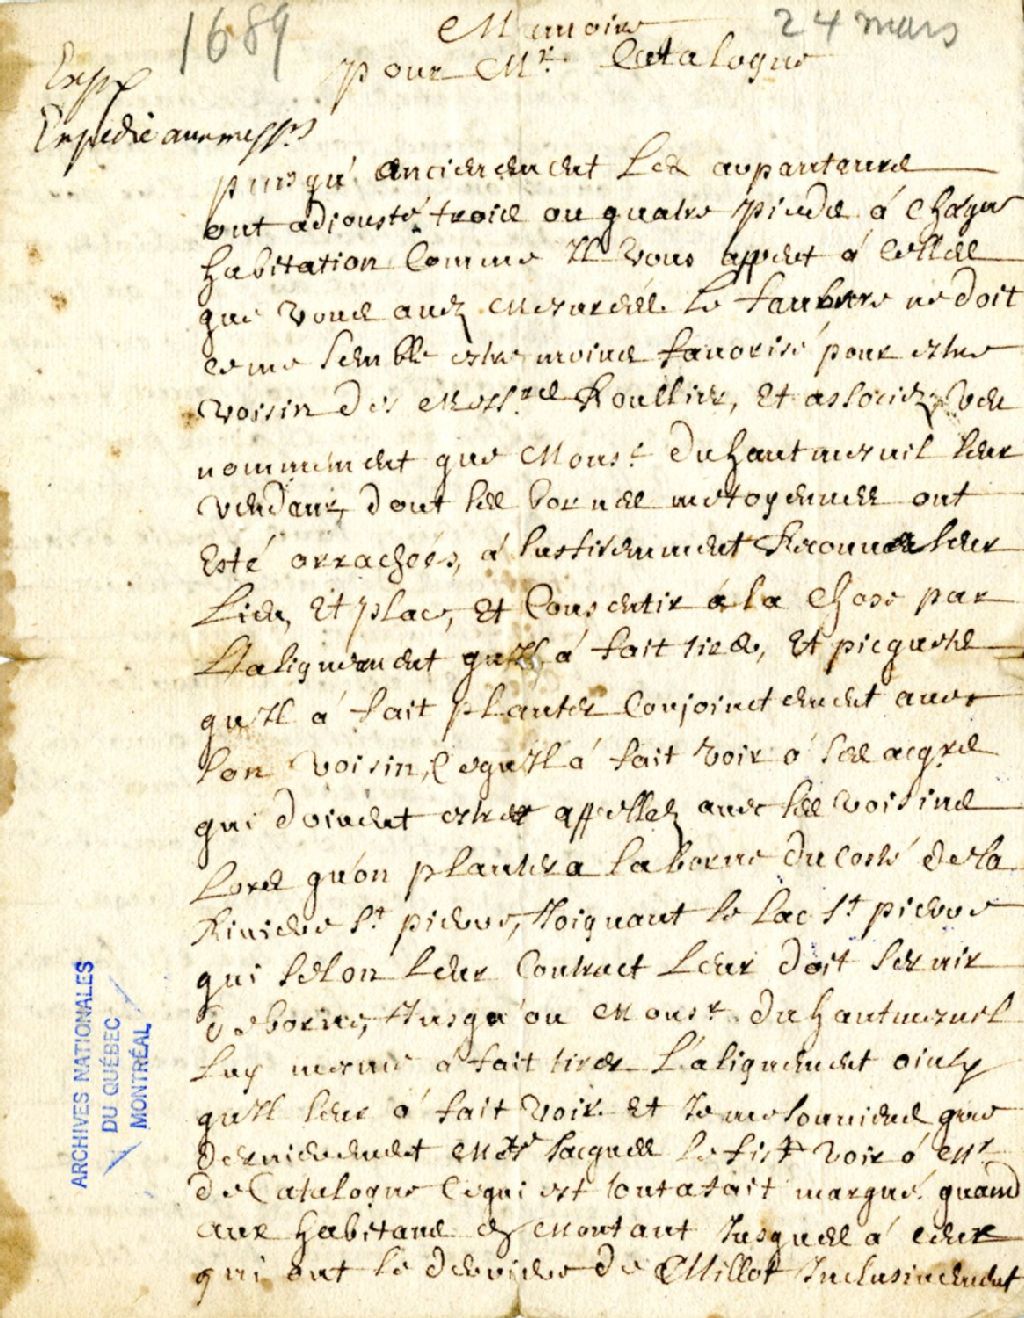 1689
24 mars
Memoire
pour Mr. Catalogne
Exp
Expedié aux mess.rs
puisqu'anciennement Les arpanteurs
ont adiousté troix ou quatre pieds á Chaque
habitation Comme Il vous appert á Celles
que vous auez Mesurées. le faubere ne doit
ce me semble estre moins fauorisé pour estre
voisin des Mess.rs Roullier, Et associez, veu
nommement que Mons.r Duhautmesnil leur
vendeur, dont les bornes metoyennes ont
Esté arrachées, á Justement Reconnu leur
Lieu, Et place, Et Consentir á la Chose par
L'alignement qu'Il á fait tirer, Et picquets
qu'Il á fait planter Conjoinctement auec
son voisin, Cequ'Il á fait voir á ses acq.rs
qui doiuent estre appellez auec les voisins
Lors qu'on plantera la borne Du Costé de la
Riuiere S.t pierre, Joignant le lac S.t pierre
qui selon leur Contract Leur doit seruir
De borne, Jusqu'ou Mons.r Duhautmesnil
Luy mesme á fait tirer L'alignement
qu'Il leur á fait voir Et Je me souuiens que
Dernierement Jacques le fist voir á Mr
De Catalogne Cequi est toutafait marqué. quand
aux habitans en Montant Jusques á ceux
qui ont le derriere De Millot Inclusiuement
ARCHIVES NATIONALES
DU QUÉBEC
MONTRÉAL